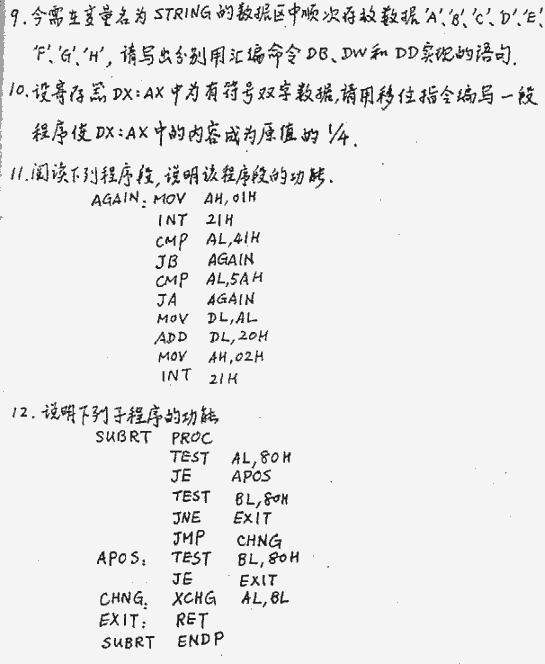 9. 今需在变量名为 STRING 的数据区中顺次存放数据 'A'、'B'、'C'、'D'、'E'、
'F'、'G'、'H'，请写出分别用汇编命令 DB、DW 和 DD 实现的语句.
10. 设寄存器 DX:AX 中为有符号双字数据，请用移位指令编写一段
程序使 DX:AX 中的内容成为原值的 1/4.
11. 阅读下列程序段，说明该程序段的功能.
AGAIN: MOV AH,01H
INT 21H
CMP AL,41H
JB AGAIN
CMP AL,5AH
JA AGAIN
MOV DL,AL
ADD DL,20H
MOV AH,02H
INT 21H
12. 说明下列子程序的功能
SUBRT PROC
TEST AL,80H
JE APOS
TEST BL,80H
JNE EXIT
JMP CHNG
APOS: TEST BL,80H
JE EXIT
CHNG: XCHG AL,BL
EXIT: RET
SUBRT ENDP